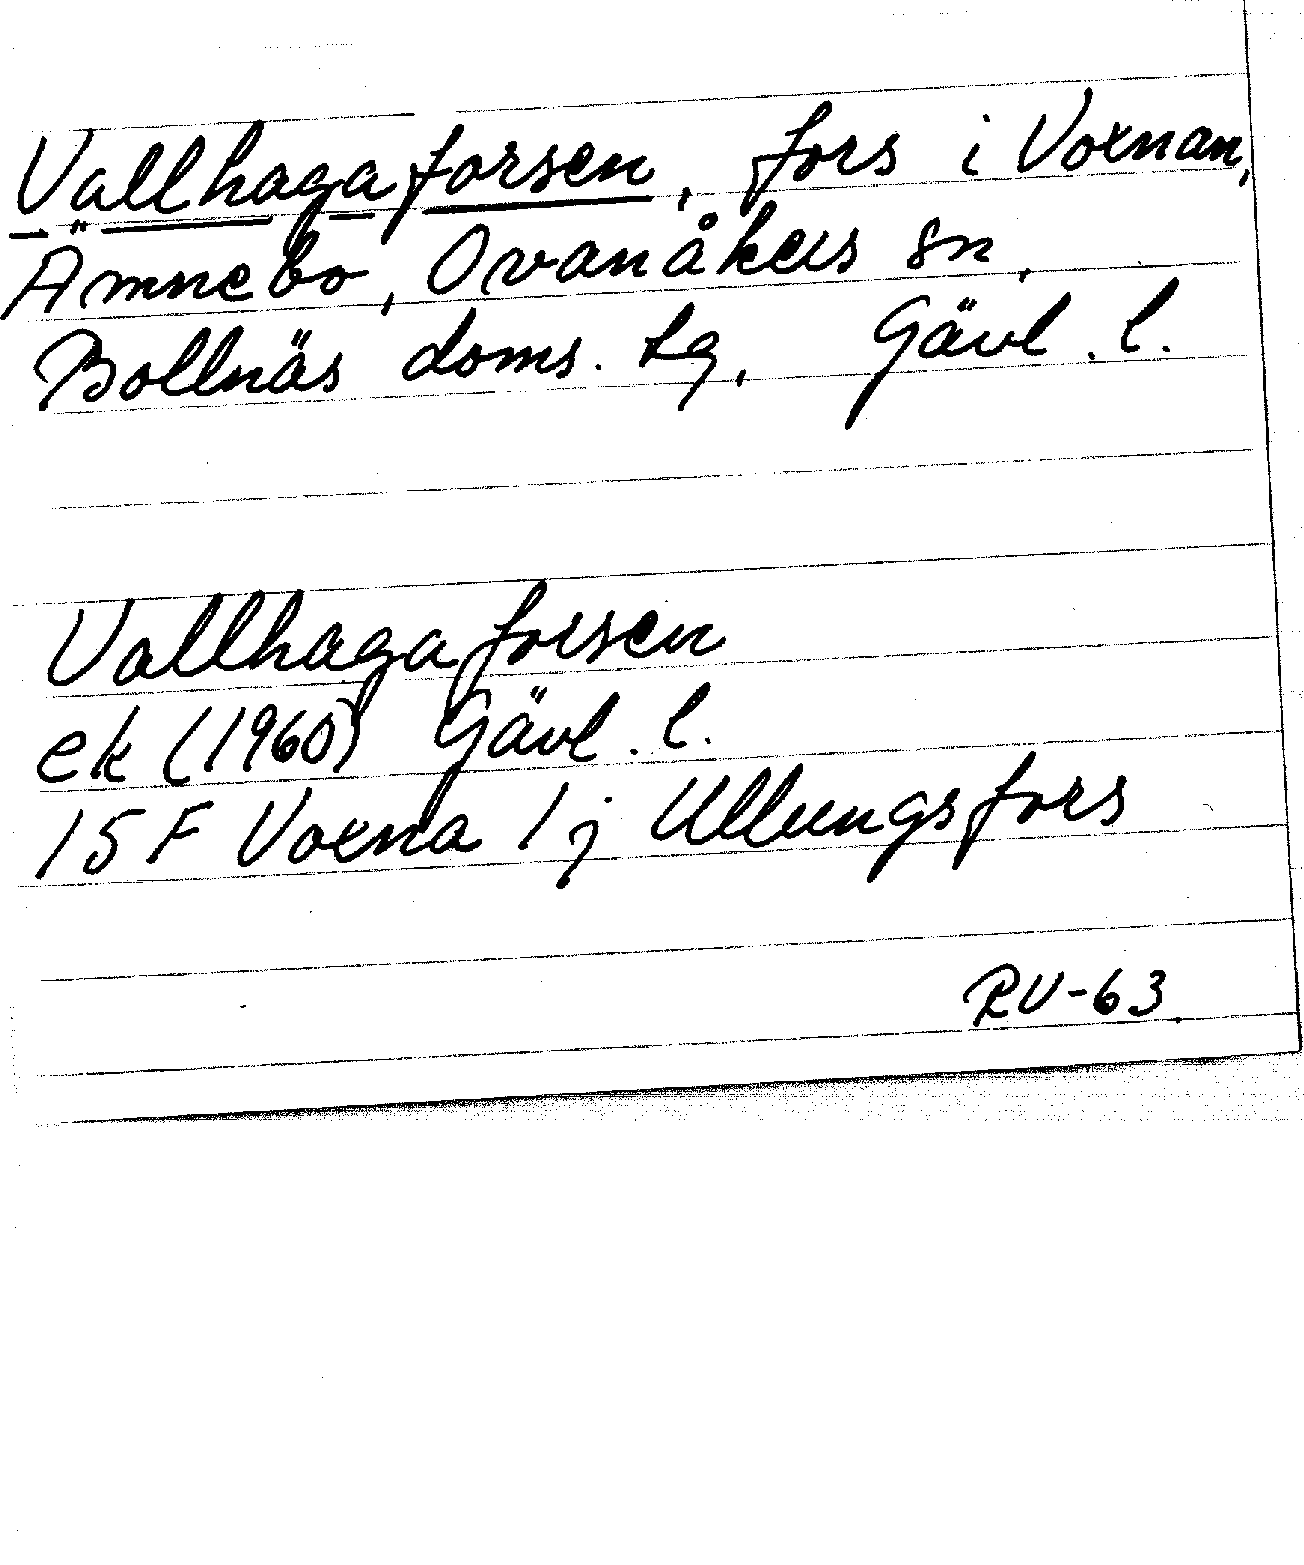 Vallhagaforsen, fors i Voxnan,
Ämnebo, Ovanåkers sn,
Bollnäs doms. tg, Gävl. l.
Vallhagaforsen
ek (1960) Gävl. l.
15 F Voxna 1 j Ullungsfors
RV-63.